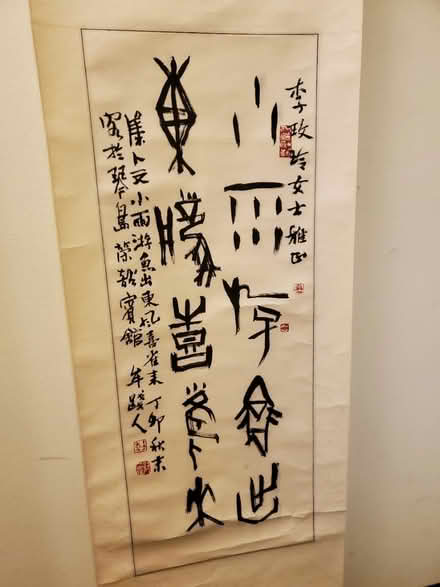 李政玲女士雅正
小雨游魚出
東風喜雀来
集卜文小雨游魚出東風喜雀来丁卯秋末
客於琴島榮韶賓館 牟踐人